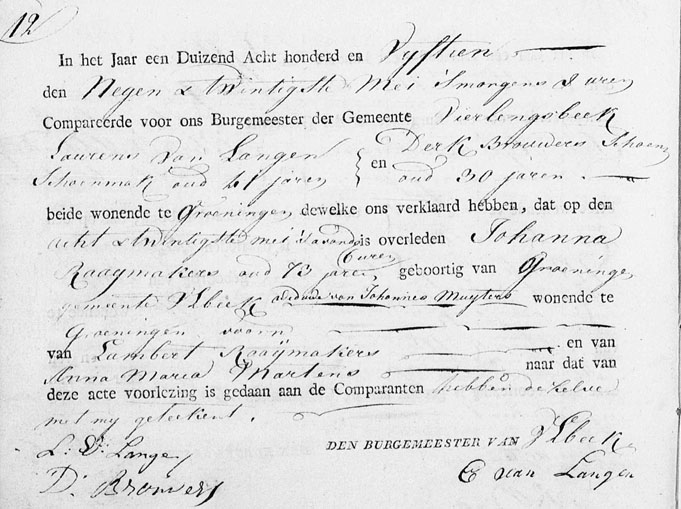 12
In het Jaar een Duizend Acht honderd en Vyftien
den Negen & twintigste Mei 'smorgens 8 uren
Compareerde voor ons Burgemeester der Gemeente Vierlengsbeek
Laurens van Langen } en Derk Brouwers Schoen
Schoenmak oud 41 jaren oud 30 jaren.
beide wonende te Groeningen dewelke ons verklaard hebben, dat op den
acht & twintigste mei 's avonds is overleden Johanna
6 uren
Raaymakers oud 73 jaren, geboortig van Groeninge
gemeente VLbeek Weduwe van Johannes Muyters wonende te
Groeningen voorn
van Lambert Raaymakers en van
Anna Maria Martens naar dat van
deze acte voorlezing is gedaan aan de Comparanten hebben dezelve
met my geteekent.
L: V: Langen
DEN BURGEMEESTER VAN VLbeek
D: Brouwers
E van Langen